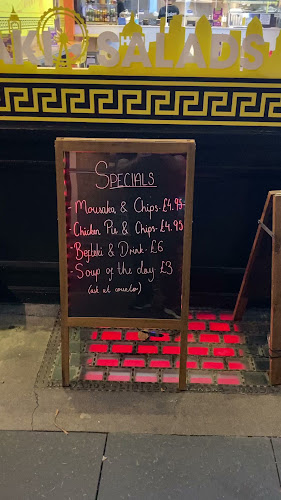 AKI SALADS
SPECIALS
- Mousaka & Chips - £4.95 -
- Chicken Pie & Chips - £4.95
Bifteki & Drink - £6
- Soup of the day £3
(ask at counter)